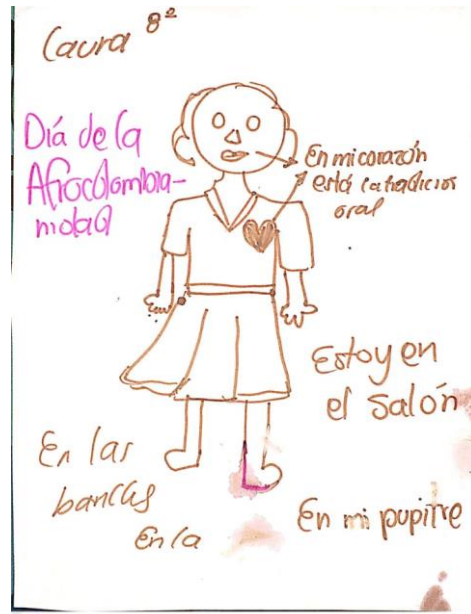 Laura 8º
Día de la
Afrocolombia-
nidad
En mi corazón
está la tradición
oral
Estoy en
el salón
En las
bancas
En la
En mi pupitre